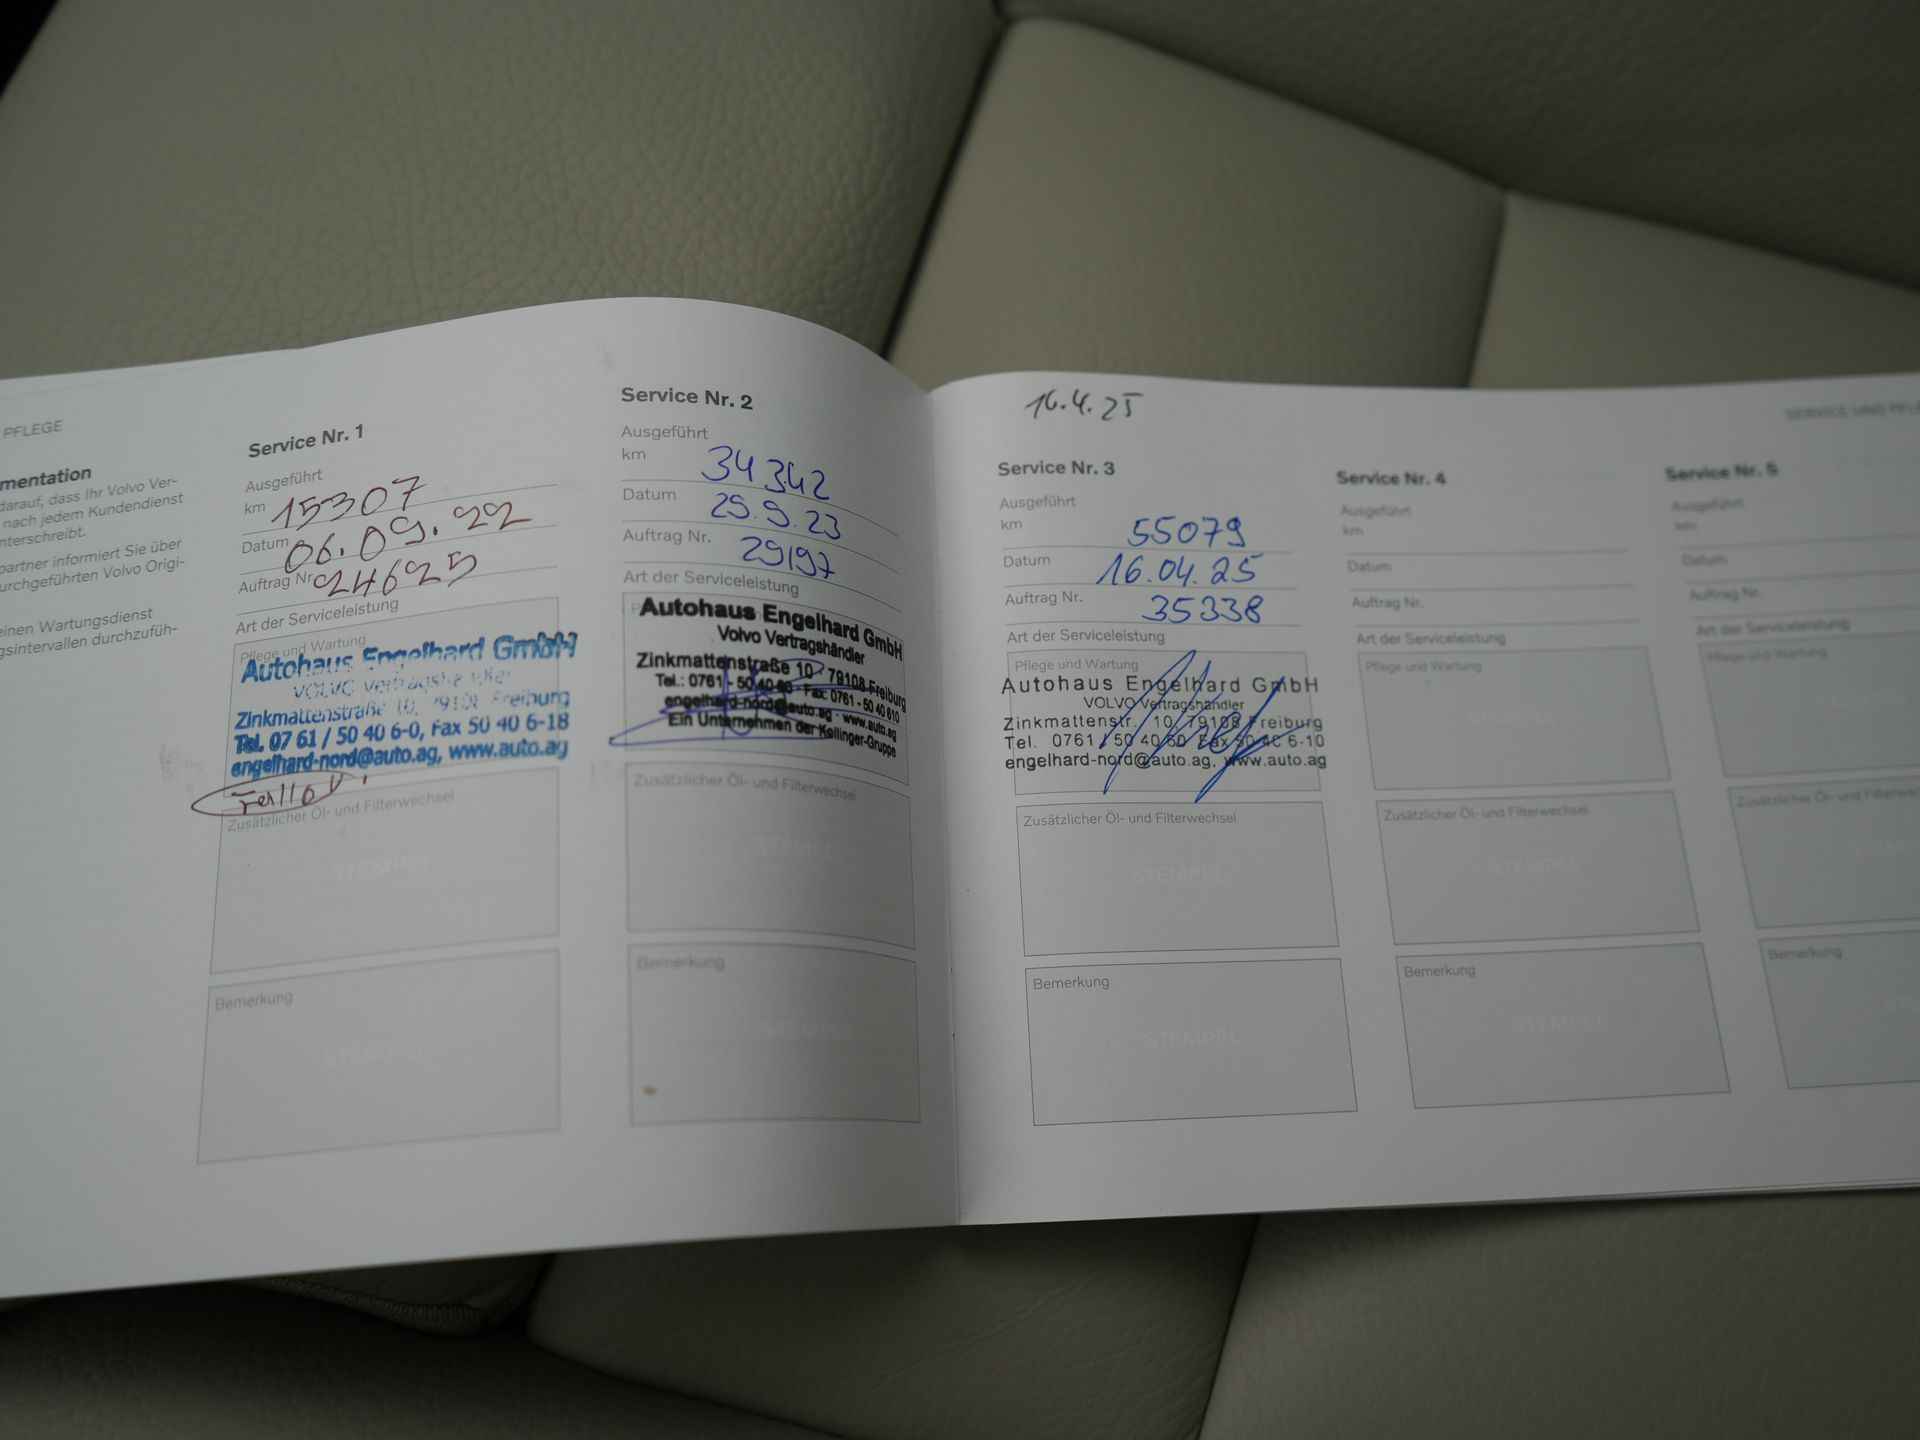 PFLEGE
mentation
darauf, dass Ihr Volvo Ver-
nach jedem Kundendienst
nterschreibt.
partner informiert Sie über
urchgeführten Volvo Origi-
einen Wartungsdienst
gsintervallen durchzufüh-
Service Nr. 1
Ausgeführt
km 15307
Datum 06.09.22
Auftrag Nr. 24625
Art der Serviceleistung
Pflege und Wartung
Autohaus Engelhard GmbH
VOLVO Vertragshändler
Zinkmattenstraße 10, 79108 Freiburg
Tel. 07 61 / 50 40 6-0, Fax 50 40 6-18
engelhard-nord@auto.ag, www.auto.ag
Zusätzlicher Öl- und Filterwechsel
STEMPEL
Bemerkung
STEMPEL
Service Nr. 2
Ausgeführt
km 34342
Datum 25.9.23
Auftrag Nr. 29197
Art der Serviceleistung
Autohaus Engelhard GmbH
Volvo Vertragshändler
Zinkmattenstraße 10 · 79108 Freiburg
Tel.: 0761 - 50 40 60 · Fax: 0761 - 50 40 610
engelhard-nord@auto.ag · www.auto.ag
Ein Unternehmen der Kollinger-Gruppe
Zusätzlicher Öl- und Filterwechsel
STEMPEL
Bemerkung
STEMPEL
16.4.25
SERVICE UND PFLE
Service Nr. 3
Ausgeführt
km 55079
Datum 16.04.25
Auftrag Nr. 35338
Art der Serviceleistung
Pflege und Wartung
Autohaus Engelhard GmbH
VOLVO Vertragshändler
Zinkmattenstr. 10, 79108 Freiburg
Tel. 0761 / 50 40 60 Fax 50 40 6-10
engelhard-nord@auto.ag, www.auto.ag
Zusätzlicher Öl- und Filterwechsel
STEMPEL
Bemerkung
STEMPEL
Service Nr. 4
Ausgeführt
km
Datum
Auftrag Nr.
Art der Serviceleistung
Pflege und Wartung
STEMPEL
Zusätzlicher Öl- und Filterwechsel
STEMPEL
Bemerkung
STEMPEL
Service Nr. 5
Ausgeführt
km
Datum
Auftrag Nr.
Art der Serviceleistung
Pflege und Wartung
Zusätzlicher Öl- und Filterwec
Bemerkung